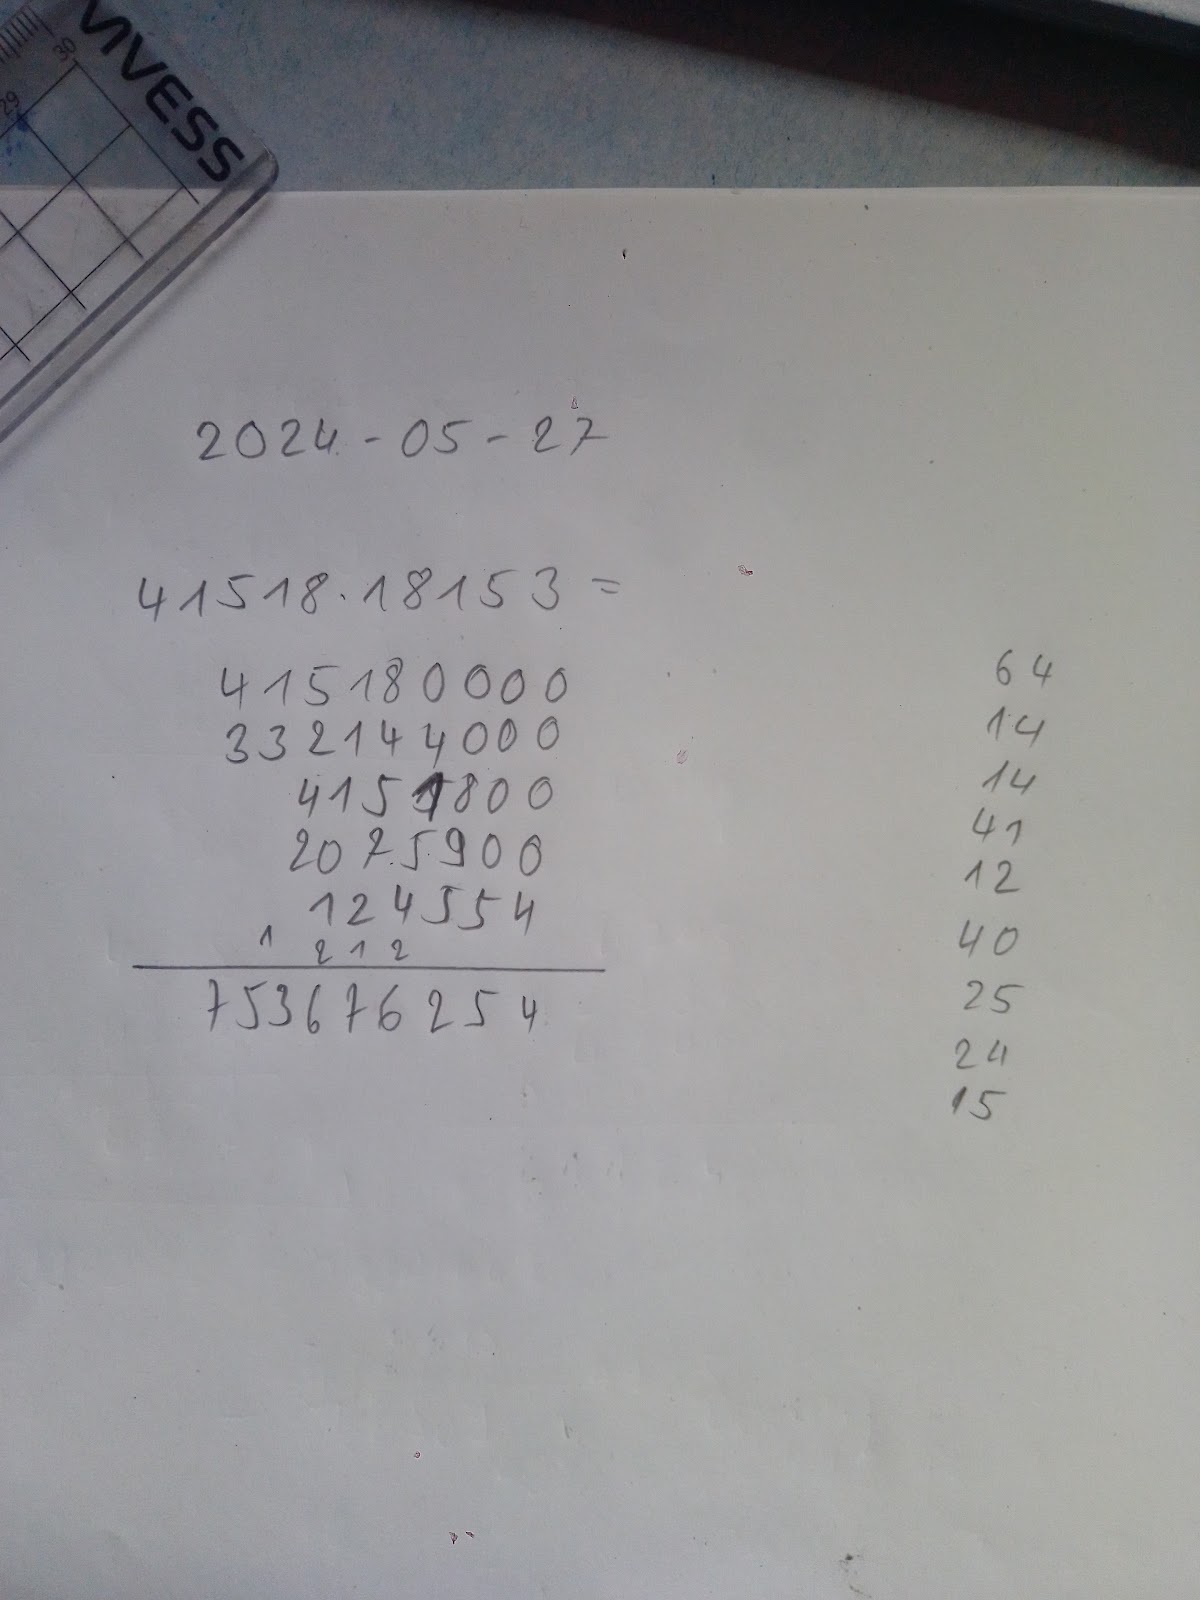 VIVESS
30
29
2024-05-27
41518.18153 =
415180000
332144000
4151800
2075900
124554
1 212
753676254
64
14
14
41
12
40
25
24
15